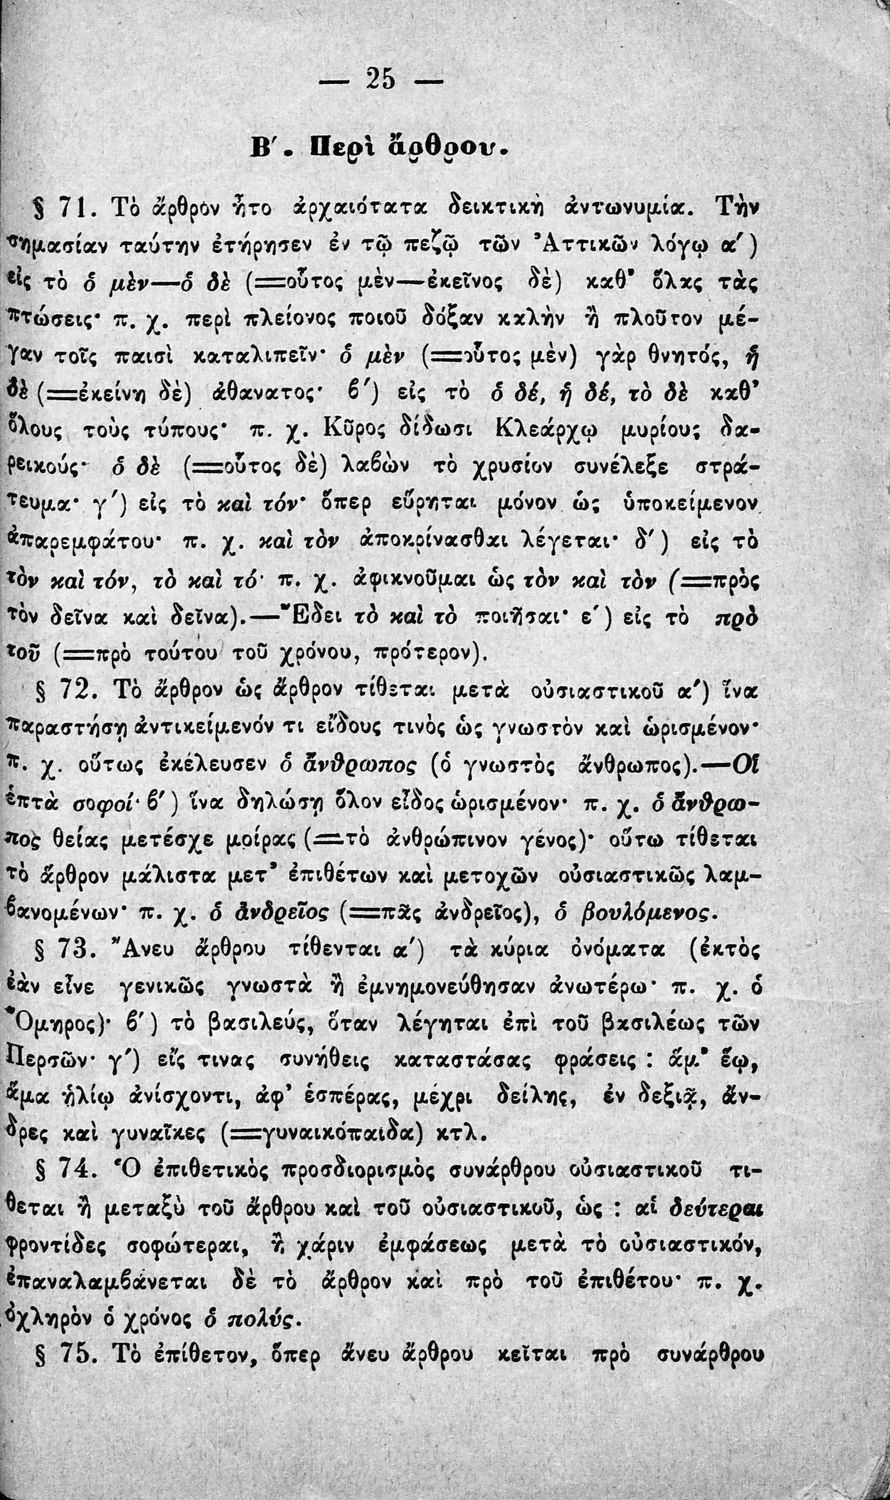 — 25 —
Β΄. Περὶ ἄρθρου.
§ 71. Τὸ ἄρθρον ἦτο ἀρχαιότατα δεικτικὴ ἀντωνυμία. Τὴν
σημασίαν ταύτην ἐτήρησεν ἐν τῷ πεζῷ τῶν Ἀττικῶν λόγῳ α΄)
εἰς τὸ ὁ μὲν—ὁ δὲ (=οὗτος μὲν—ἐκεῖνος δὲ) καθ' ὅλας τὰς
πτώσεις· π. χ. περὶ πλείονος ποιοῦ δόξαν καλὴν ἢ πλοῦτον μέ-
γαν τοῖς παισὶ καταλιπεῖν· ὁ μὲν (=οὗτος μὲν) γὰρ θνητός, ἡ
δὲ (=ἐκείνη δὲ) ἀθανατος· ϐ΄) εἰς τὸ ὁ δέ, ἡ δέ, τὸ δὲ καθ'
ὅλους τοὺς τύπους· π. χ. Κῦρος δίδωσι Κλεάρχῳ μυρίους δα-
ρεικούς· ὁ δὲ (=οὗτος δὲ) λαϐὼν τὸ χρυσίον συνέλεξε στρά-
τευμα· γ΄) εἰς τὸ καὶ τόν· ὅπερ εὕρηται μόνον ὡς ὑποκείμενον
ἀπαρεμφάτου· π. χ. καὶ τὸν ἀποκρίνασθαι λέγεται· δ΄) εἰς τὸ
τὸν καὶ τόν, τὸ καὶ τό· π. χ. ἀφικνοῦμαι ὡς τὸν καὶ τὸν (=πρὸς
τὸν δεῖνα καὶ δεῖνα).—Ἔδει τὸ καὶ τὸ ποιῆσαι· ε΄) εἰς τὸ πρὸ
τοῦ (=πρὸ τούτου τοῦ χρόνου, πρότερον).
§ 72. Τὸ ἄρθρον ὡς ἄρθρον τίθεται μετὰ οὐσιαστικοῦ α΄) ἵνα
παραστήσῃ ἀντικείμενόν τι εἴδους τινὸς ὡς γνωστὸν καὶ ὡρισμένον·
π. χ. οὕτως ἐκέλευσεν ὁ ἄνθρωπος (ὁ γνωστὸς ἄνθρωπος).—Οἱ
ἑπτὰ σοφοί· ϐ΄) ἵνα δηλώσῃ ὅλον εἶδος ὡρισμένον· π. χ. ὁ ἄνθρω-
πος θείας μετέσχε μοίρας (=τὸ ἀνθρώπινον γένος)· οὕτω τίθεται
τὸ ἄρθρον μάλιστα μετ' ἐπιθέτων καὶ μετοχῶν οὐσιαστικῶς λαμ-
ϐανομένων· π. χ. ὁ ἀνδρεῖος (=πᾶς ἀνδρεῖος), ὁ βουλόμενος.
§ 73. Ἄνευ ἄρθρου τίθενται α΄) τὰ κύρια ὀνόματα (ἐκτὸς
ἐὰν εἶνε γενικῶς γνωστὰ ἢ ἐμνημονεύθησαν ἀνωτέρω· π. χ. ὁ
Ὅμηρος)· ϐ΄) τὸ βασιλεύς, ὅταν λέγηται ἐπὶ τοῦ βασιλέως τῶν
Περσῶν· γ΄) εἴς τινας συνήθεις καταστάσας φράσεις : ἅμ' ἕῳ,
ἅμα ἡλίῳ ἀνίσχοντι, ἀφ' ἑσπέρας, μέχρι δείλης, ἐν δεξιᾷ, ἄν-
δρες καὶ γυναῖκες (=γυναικόπαιδα) κτλ.
§ 74. Ὁ ἐπιθετικὸς προσδιορισμὸς συνάρθρου οὐσιαστικοῦ τί-
θεται ἢ μεταξὺ τοῦ ἄρθρου καὶ τοῦ οὐσιαστικοῦ, ὡς : αἱ δεύτεραι
φροντίδες σοφώτεραι, ἢ χάριν ἐμφάσεως μετὰ τὸ οὐσιαστικόν,
ἐπαναλαμϐάνεται δὲ τὸ ἄρθρον καὶ πρὸ τοῦ ἐπιθέτου· π. χ.
ὀχληρὸν ὁ χρόνος ὁ πολύς.
§ 75. Τὸ ἐπίθετον, ὅπερ ἄνευ ἄρθρου κεῖται πρὸ συνάρθρου